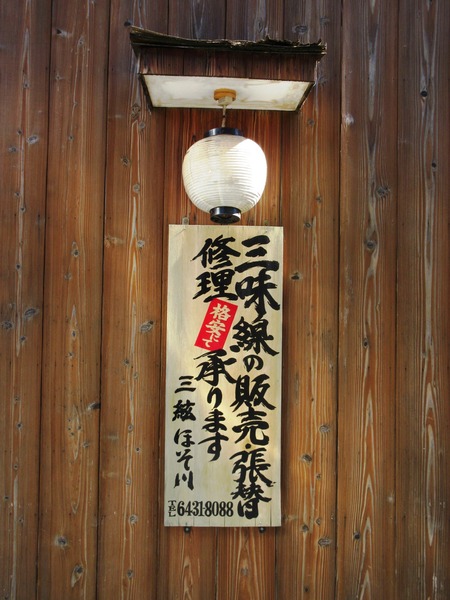 三味線の販売・張替
修理格安にて承ります
三絃 ほそ川
TEL 6431-8088